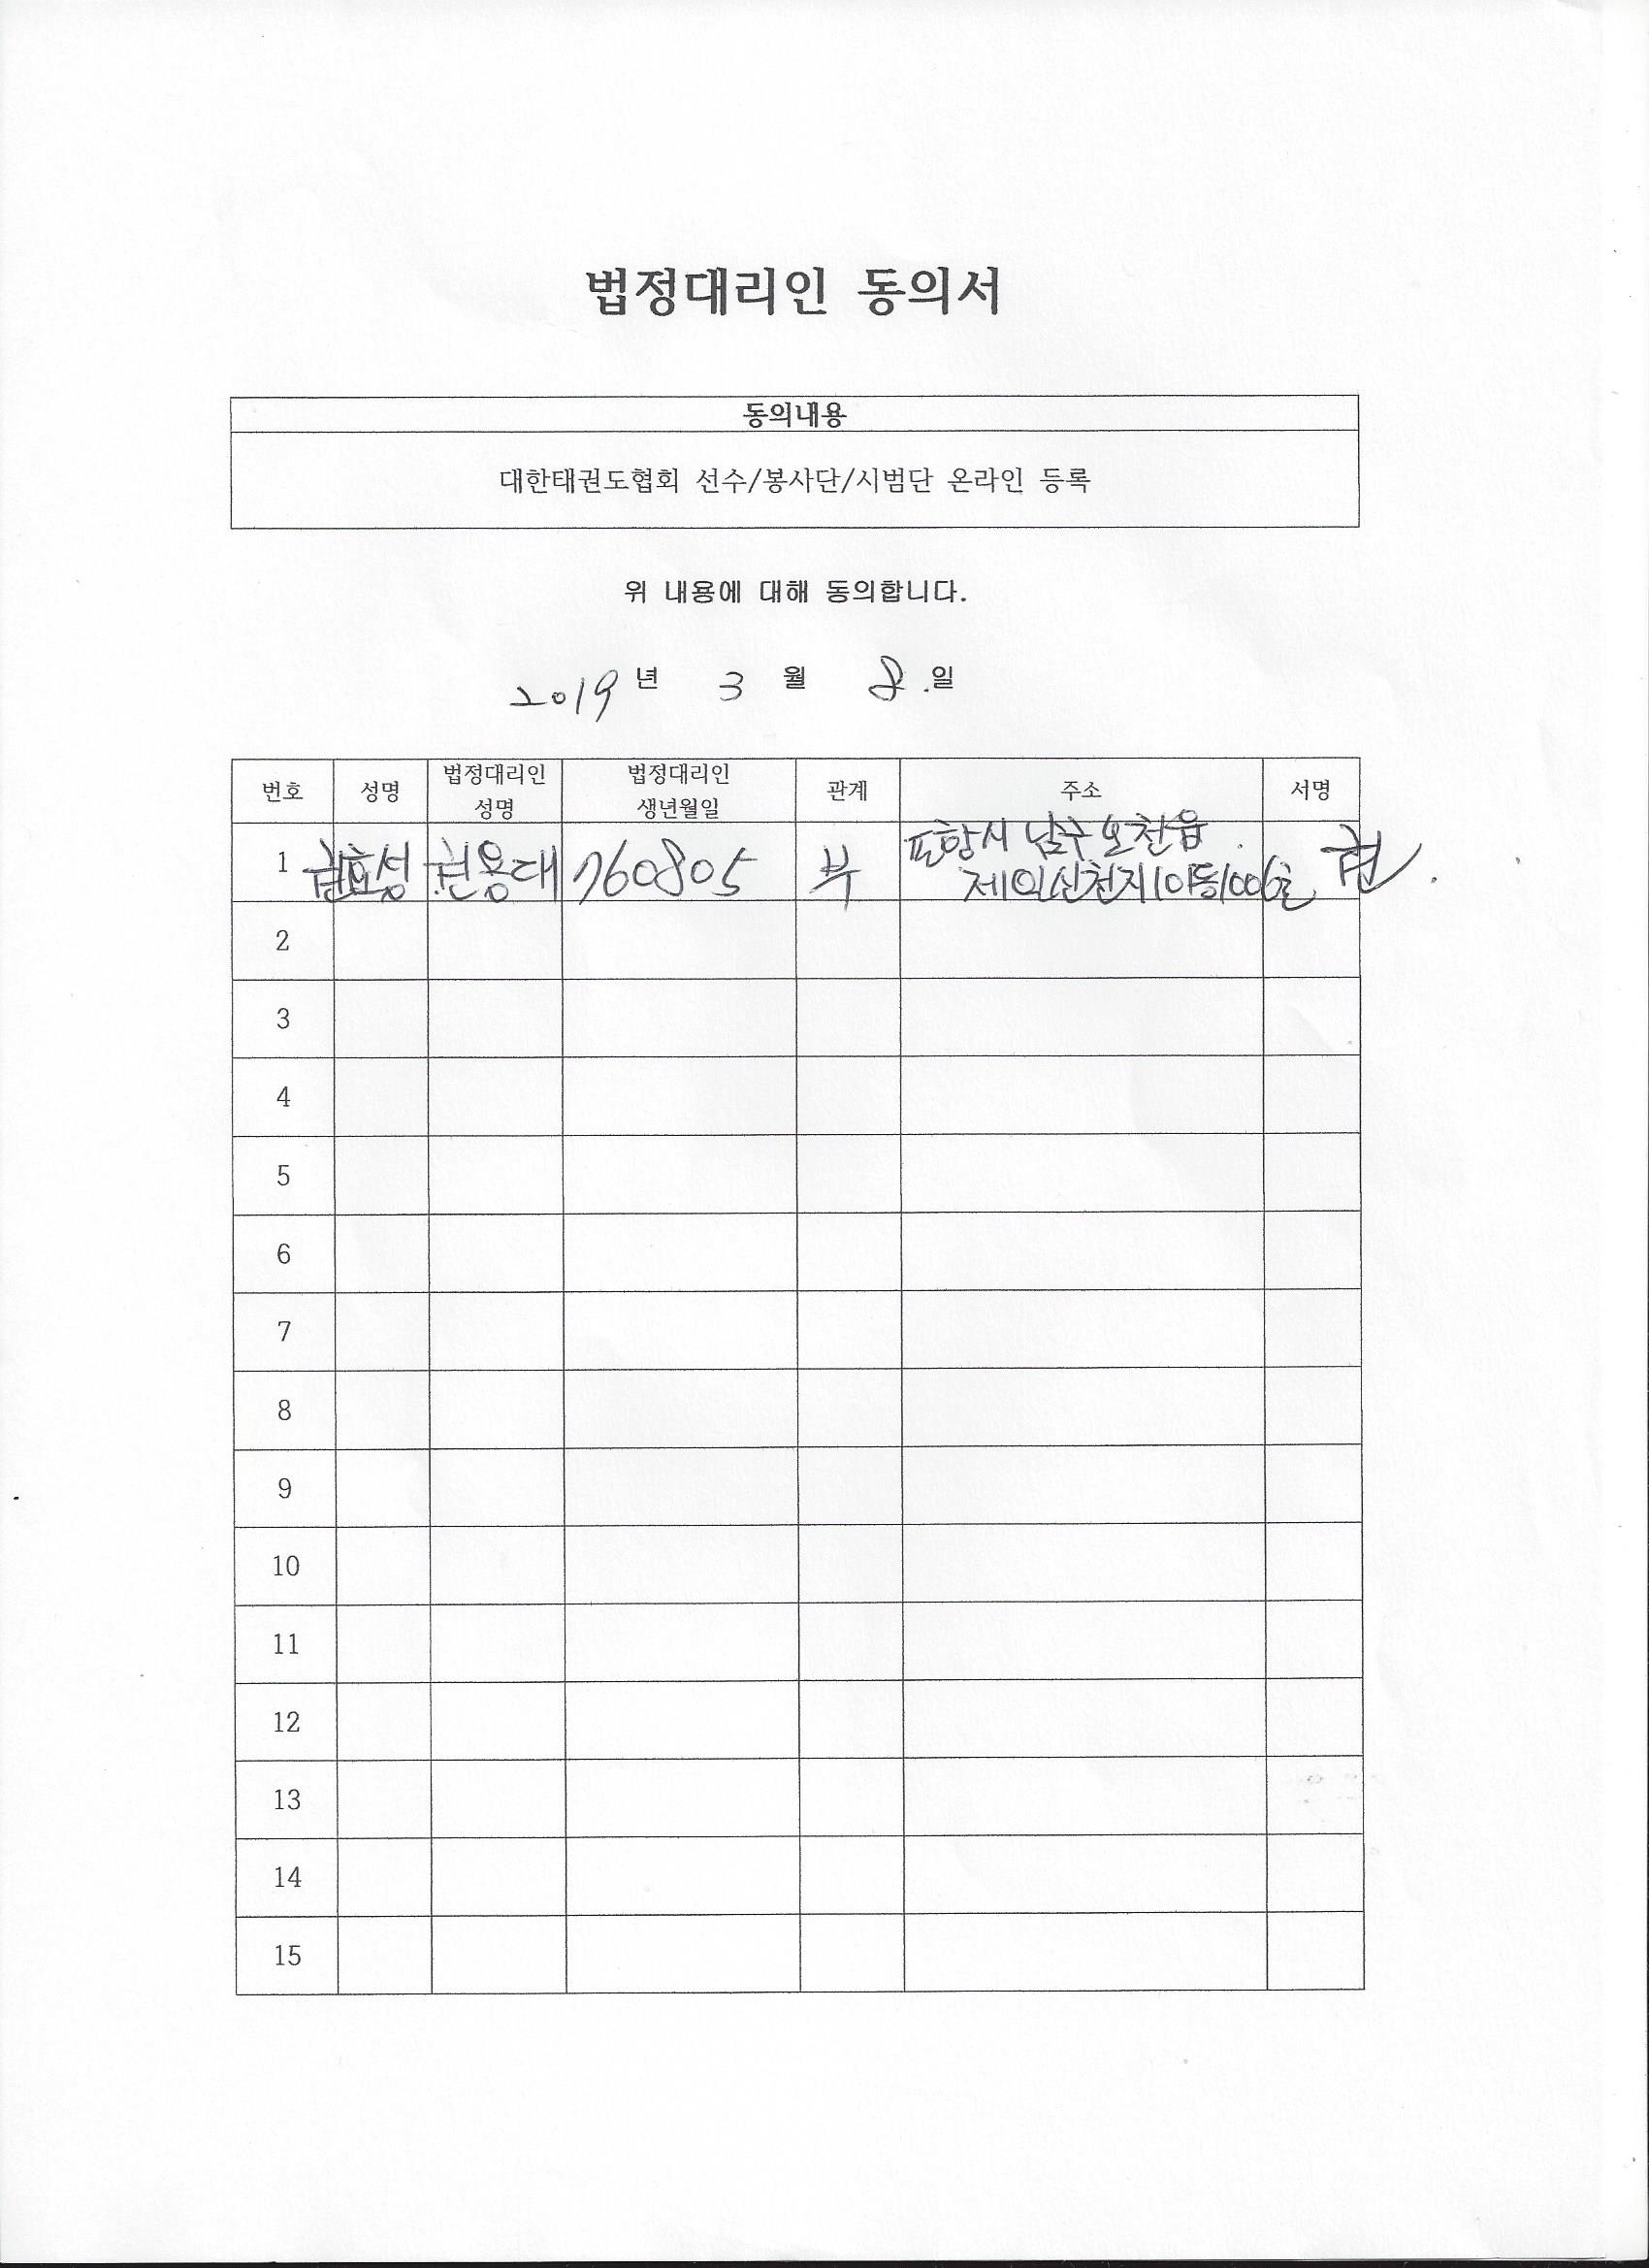 법정대리인 동의서
동의내용
대한태권도협회 선수/봉사단/시범단 온라인 등록
위 내용에 대해 동의합니다.
2019 년 3 월 8 일
번호 성명 법정대리인 성명 법정대리인 생년월일 관계 주소 서명
1 권효성 권용대 760805 부 포항시 남구 오천읍
신천지 동 1006호 권
2
3
4
5
6
7
8
9
10
11
12
13
14
15